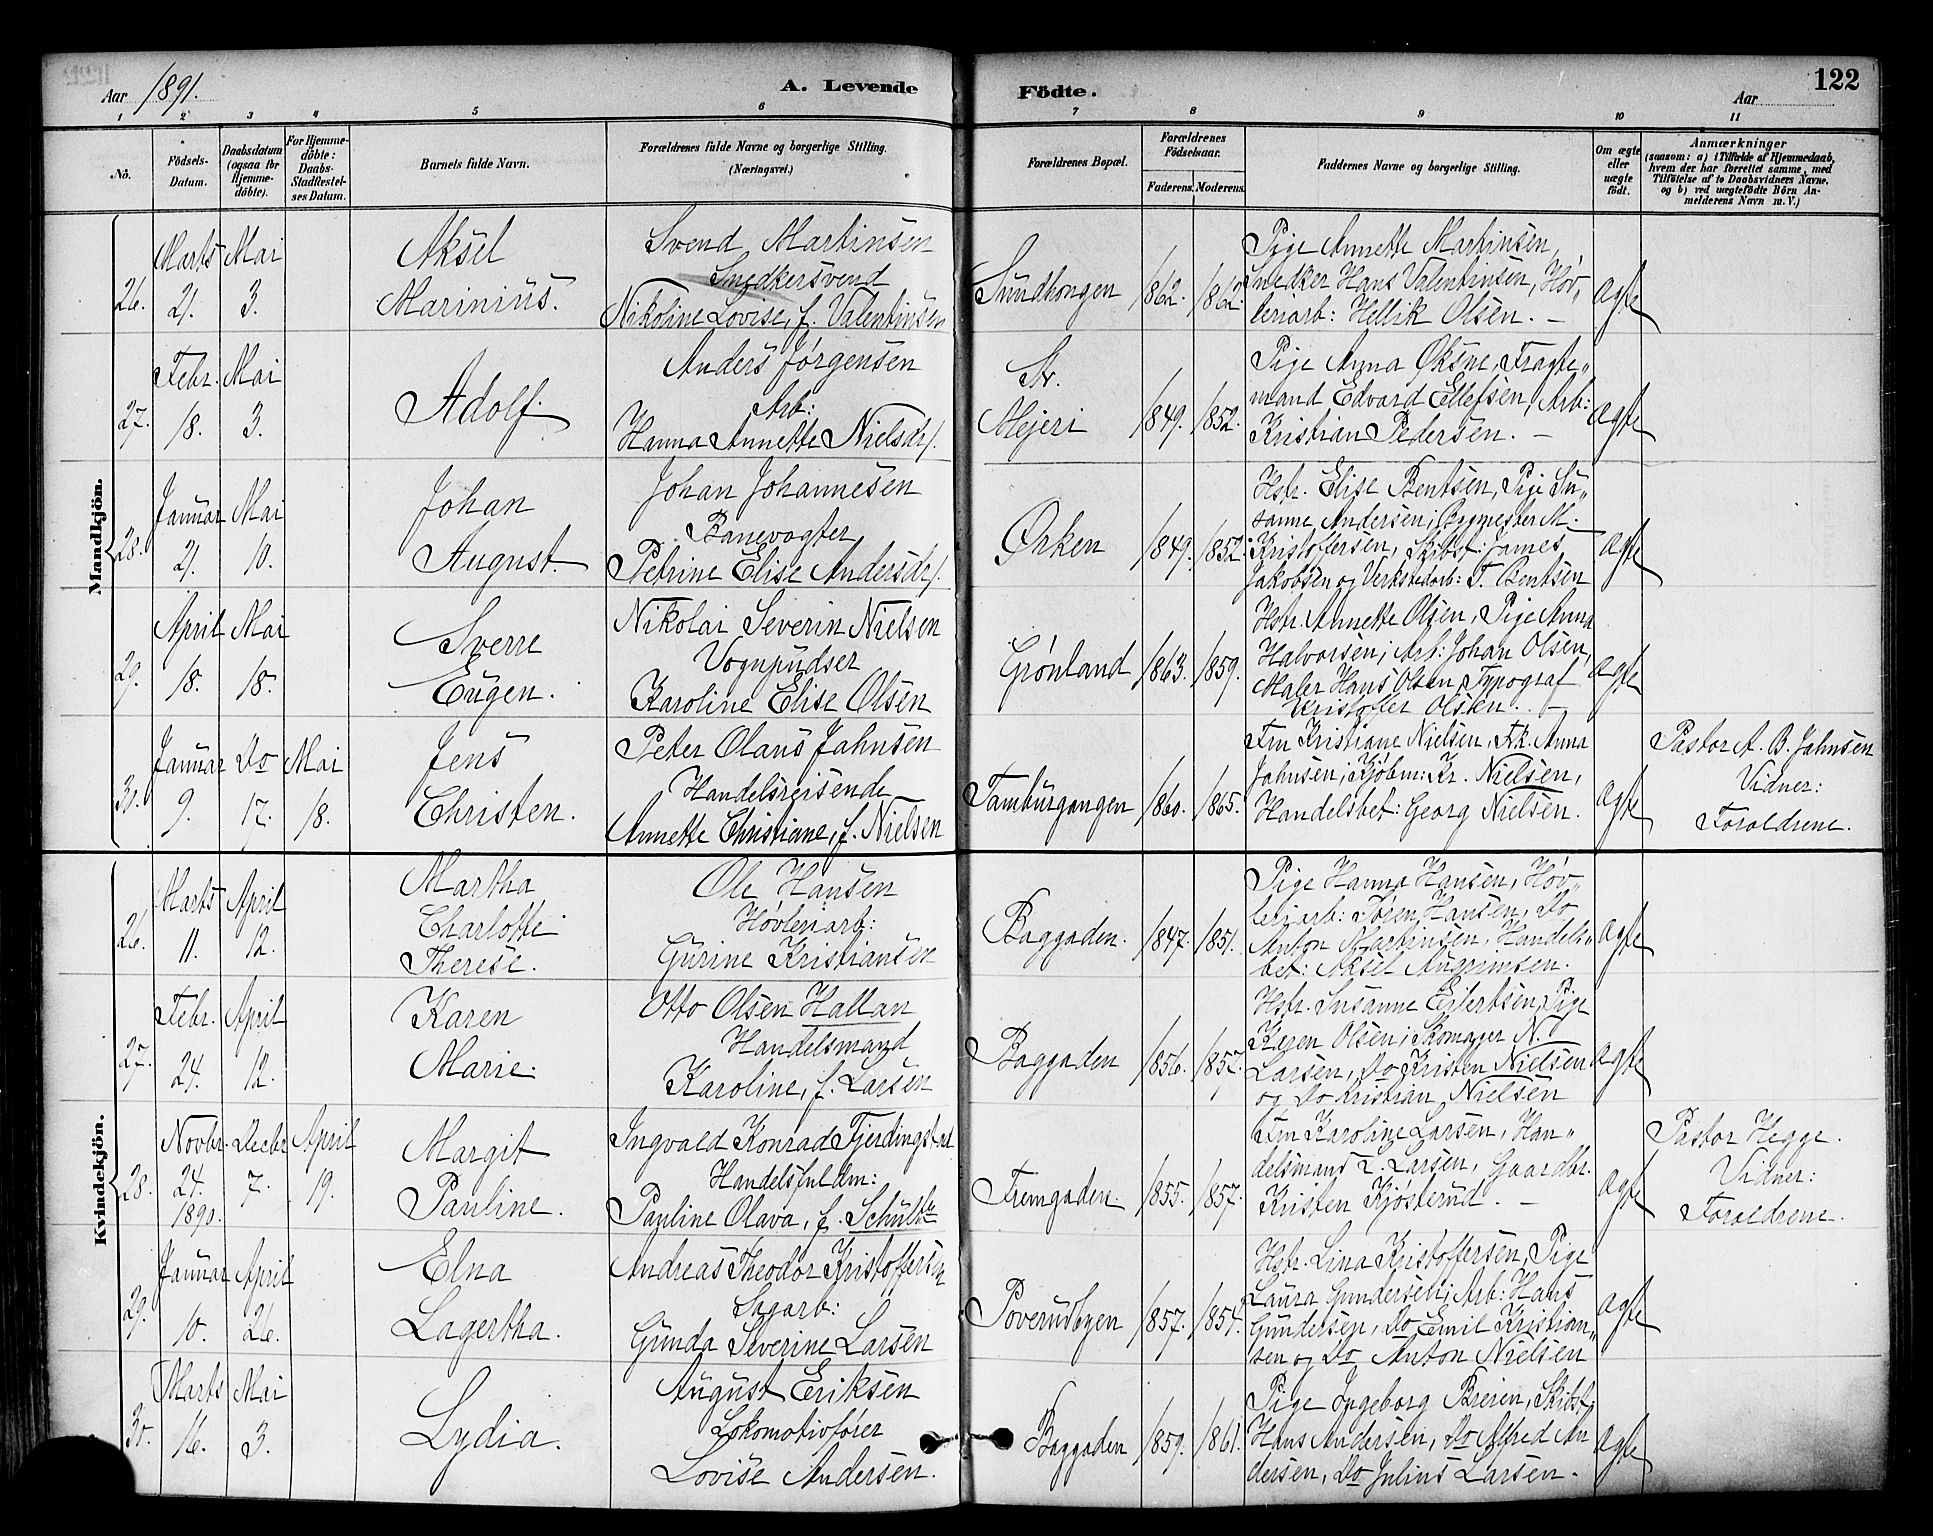 Aar 1891. A. Levende Födte. Aar 122
1 2 3 4 5 6 7 8 9 10 11
No. Födsels-Datum. Daabsdatum (ogsaa for Hjemmedöbte). For Hjemmedöbte: Daabs-Stadfæstelses Datum. Barnets fulde Navn. Forældrenes fulde Navne og borgerlige Stilling. (Næringsvei.) Forældrenes Bopæl. Forældrenes Födselsaar. Faderens. Moderens. Faddernes Navne og borgerlige Stilling. Om ægte eller uægte födt. Anmærkninger (saasom: a) i Tilfælde af Hjemmedaab, hvem der har forrettet samme, med Tilföielse af to Daabsvidners Navne, og b) ved uægtefödte Börn Anmelderens Navn m. V.)
Mandkjön.
26. Marts 21. Mai 3.
Aksel
Marinius.
Svend Martinsen
Snedkersvend
Nikoline Lovise, f. Valentinsen
Sundhongen 1862. 1862.
Pige Annette Martinsen,
Snedker Hans Valentinsen, Höv„
leriarb: Hellik Olsen. —
ægte
27. Febr. 18. Mai 3.
Adolf.
Anders Jörgensen
Arb:
Hanna Annette Nielsdr.
Str.
Mejeri 1849. 1852.
Pige Anna Øksne, Fragte„
mand Edvard Ellefsen, Arb:
Kristian Pedersen. —
ægte
28. Januar 21. Mai 10.
Johan
August.
Johan Johannesen
Banevogter
Petrine Elise Andersdr.
Ørken 1849. 1852.
Hstr. Elise Bentsen, Pige Su„
sanne Andersen; Bygmester M.
Kristoffersen, Skibst: James
Jakobsen og Verkstedarb: T. Bentsen
ægte
29. April 18. Mai 18.
Sverre
Eugen.
Nikolai Severin Nielsen
Vognpudser
Karoline Elise Olsen
Grønland 1863. 1859.
Hstr. Annette Olsen, Pige Anna
Halvorsen; Arb: Johan Olsen,
Maler Hans Olsen, Typograf
Kristoffer Olsen. —
ægte
30. Januar 9. Do 17. Mai 18.
Jens
Christen.
Peter Olaus Jahnsen
Handelsreisende
Annette Christiane, f. Nielsen
Tamburgangen 1860. 1865.
Fru Kristiane Nielsen, Frk. Anna
Jahnsen; Kjöbm: Kr. Nielsen,
Handelsbet: Georg Nielsen.
ægte
Pastor A. B. Jahnsen
Vidner:
Foræeldrene.
Kvindekjön.
26. Marts 11. April 12.
Martha
Charlotte
Therese.
Ole Hansen
Høvleriarb:
Gurine Kristiansen
Baggaden. 1847. 1851.
Pige Hanna Hansen, Höv„
leriarb: Sören Hansen, Do
Anton Martinsen, Handels„
bet: Aksel Augrimsen.
ægte
27. Febr. 24. April 12.
Karen
Marie.
Otto Olsen Hallan
Handelsmand
Karoline, f. Larsen
Baggaden 1856. 1857.
Hstr. Susanne Eilertsen, Pige
Karen Olsen; Skomager N.
Larsen, Do Kristen Nielsen
og Do Kristian Nielsen
ægte
28. Novbr. 24. 1890. Decbr 7. April 19.
Margit
Pauline.
Ingvald Konrad Fjerdingstad
Handelsfuldm:
Pauline Olava, f. Schulte
Fremgaden. 1855. 1857.
Fru Karoline Larsen, Han„
delsmand L. Larsen, Gaardbr.
Kristen Kjösterud. —
ægte
Pastor Hegge.
Vidner:
Foræeldrene.
29. Januar 10. April 26.
Elna
Lagertha.
Andreas Theodor Kristoffersen
Sagarb:
Gunda Severine Larsen
Poverudbyen 1857. 1854.
Hstr. Lina Kristoffersen, Pige
Laura Gundersen; Arb: Hans
Gundersen, Do Emil Kristian„
sen og Do Anton Nielsen
ægte
30. Marts 16. Mai 3.
Lydia.
August Eriksen
Lokomotivfører
Lovise Andersen.
Baggaden 1859. 1861.
Pige Ingeborg Breien, Skibst.
Hans Andersen, Do Alfred An
dersen, Do Julius Larsen.
ægte